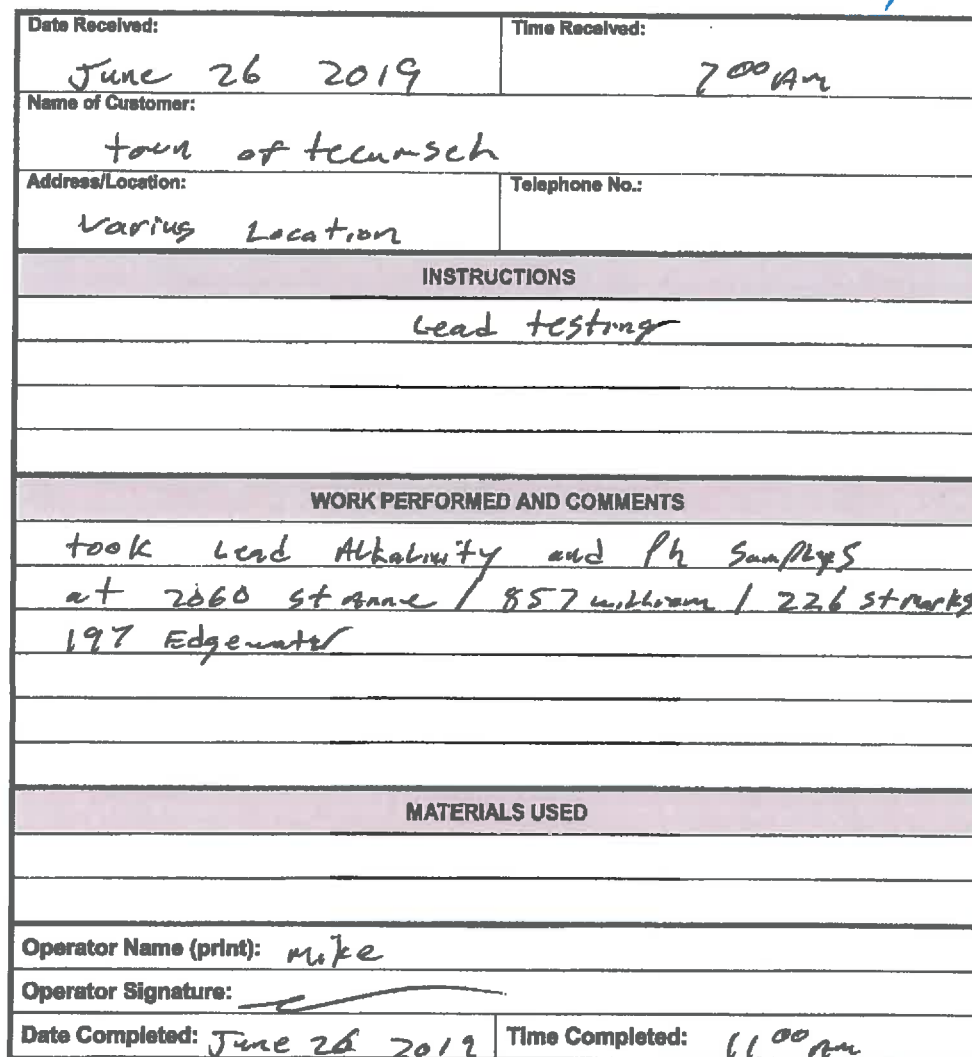 Date Received: Time Received:
June 26 2019 7 00 Am
Name of Customer:
town of tecumseh
Address/Location: Telephone No.:
Varius Location
INSTRUCTIONS
Lead testing
WORK PERFORMED AND COMMENTS
took Lead Alkalinity and Ph Samplys
at 2060 st Anne / 857 william / 226 st marks
197 Edgewater
MATERIALS USED
Operator Name (print): Mike
Operator Signature:
Date Completed: June 26 2019 Time Completed: 11 00 Am